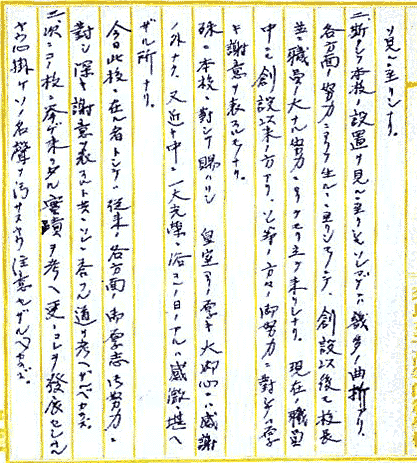 ソ見ルニ至リシナリ。
二、斯クシテ本校ノ設置ヲ見ルニ至リシモソレマデニハ幾多ノ曲折アリ。
各方面ノ努力ニヨリテ生ルヽニ至リシモノニシテ、創設以後モ校長
並ニ職員ノ大ナル努力ニヨリテ セラレテ来リシナリ。現在ノ職員
中ニモ創設以来ノ方アリ、ソレ等ノ方々ノ御努力ニ対シテハ厚
キ謝意ヲ表スルモノナリ。
殊ニ本校ニ対シテ賜ハリシ 皇室ヨリノ厚キ大御心ニハ感謝
ノ外ナク、又近キ中ニ一大光栄ニ浴スルノ日ノアルハ感激ニ堪ヘ
ザル所ナリ。
今日此校ニ在ル者トシテハ従来ノ各方面ノ御厚志御努力ニ
対シ深キ謝意ヲ表スルト共ニソレニ答フル道ヲ考ヘザルベカラズ。
二、次ニコノ校ニ挙ゲ来リタル実蹟ヲ考ヘ更ニコレヲ発展セシムル
ヤウ心掛ケソノ名声ヲ汚サヌヤウ注意セザルベカラズ。